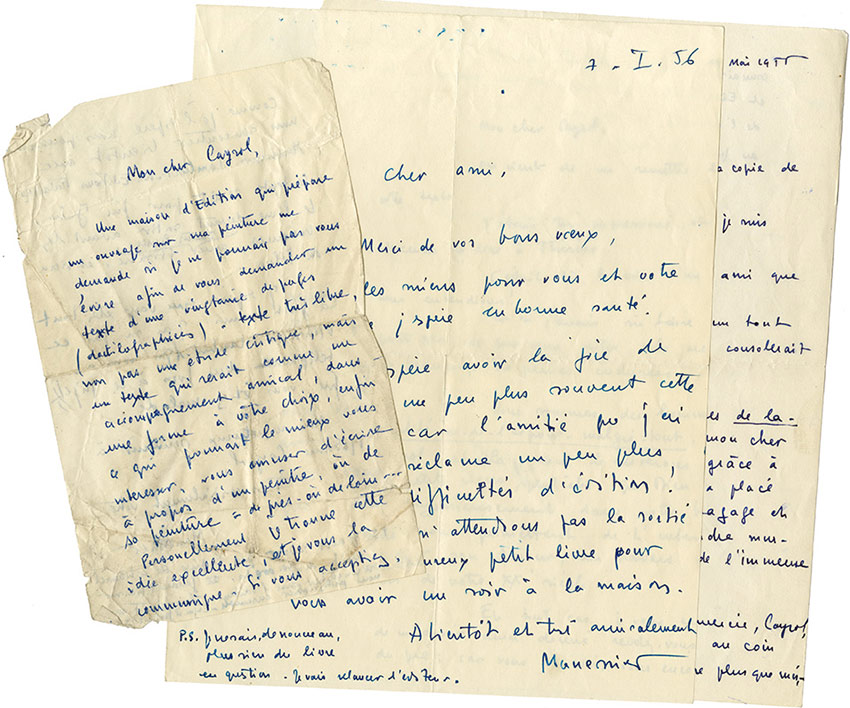 Mon cher Cayrol,
Une maison d'Edition qui prépare
un ouvrage sur ma peinture me
demande si je ne pourrais pas vous
écrire afin de vous demander un
texte d'une vingtaine de pages
(dactilographiées) - texte très libre,
non pas une étude critique, mais
un texte qui serait comme un
accompagnement amical, dans
une forme à votre choix, enfin
ce qui pourrait le mieux vous
intéresser, vous amuser d'écrire
à propos d'un peintre, ou de
sa peinture - de près - ou de loin - - -
Personellement je trouve cette
idée excellente, et je vous la
communique - Si vous acceptez,
7 - I. 56
Cher ami,
Merci de vos bons vœux,
les miens pour vous et votre
j'espère en bonne santé.
avoir la joie de
un peu plus souvent cette
car l'amitié
réclame un peu plus,
difficultés d'édition.
n'attendrons pas la sortie
petit livre pour
vous avoir un soir à la maison.
A bientôt et très amicalement
Manessier
P.S. je
plus rien du livre
en question - je vais relancer l'éditeur.
Mai 1955
copie de
je suis
ami que
un tout
consolerait
de la-
mon cher
grâce à
a placé
et
de l'immense
Cayrol,
au coin
plus que